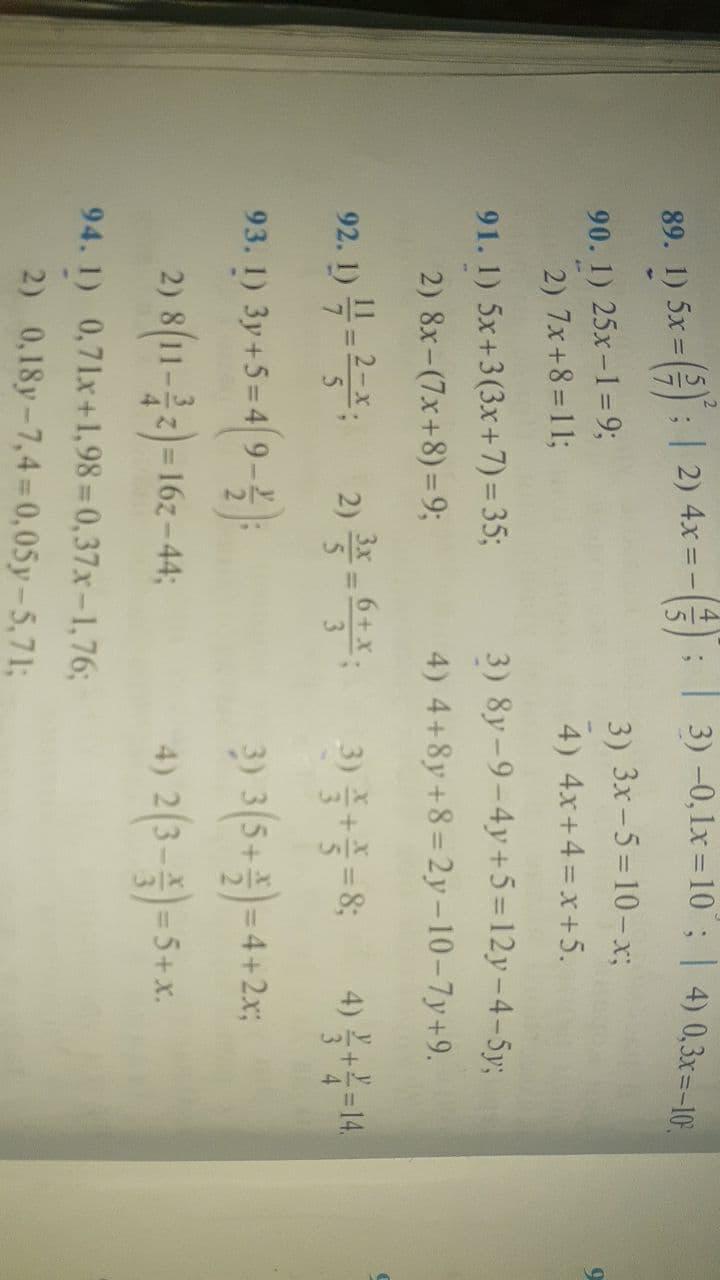 89. 1) 5x=(5/7)²; | 2) 4x=-(4/5) ; | 3) -0,1x=10 ; | 4) 0,3x=-10
90. 1) 25x-1=9; 3) 3x-5=10-x;
2) 7x+8=11; 4) 4x+4=x+5.
91. 1) 5x+3(3x+7)=35; 3) 8y-9-4y+5=12y-4-5y;
2) 8x-(7x+8)=9; 4) 4+8y+8=2y-10-7y+9.
92. 1) 11/7=(2-x)/5; 2) 3x/5=(6+x)/3; 3) x/3+x/5=8; 4) y/3+y/4=14.
93. 1) 3y+5=4(9-y/2); 3) 3(5+x/2)=4+2x;
2) 8(11-3/4z)=16z-44; 4) 2(3-x/3)=5+x.
94. 1) 0,71x+1,98=0,37x-1,76;
2) 0,18y-7,4=0,05y-5,71;